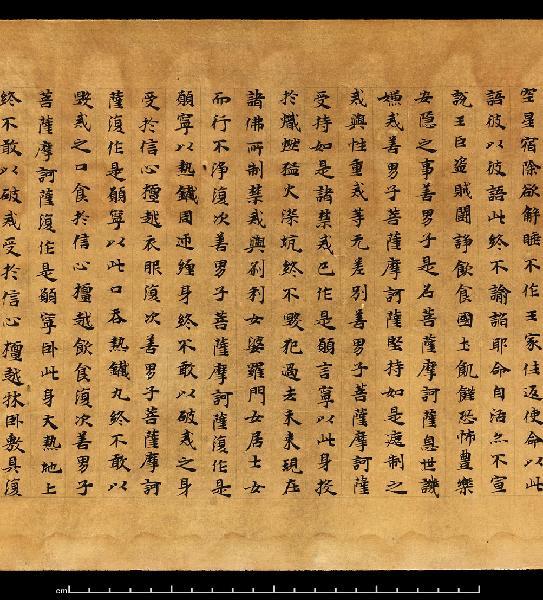 空星宿除欲解睡不作王家往返使命以此
語彼以彼語此終不諭諂耶命自活亦不宣
說王臣盜賊鬪諍飲食國土飢饉恐怖豐樂
安隱之事善男子是名菩薩摩訶薩息世譏
嫌戒善男子菩薩摩訶薩堅持如是遮制之
戒與性重戒等无差別善男子菩薩摩訶薩
受持如是諸禁戒已作是願言寧以此身投
於熾燃猛火深坑終不毀犯過去未來現在
諸佛所制禁戒與剎利女婆羅門女居士女
而行不淨復次善男子菩薩摩訶薩復作是
願寧以熱鐵周迊纏身終不敢以破戒之身
受於信心檀越衣服復次善男子菩薩摩訶
薩復作是願寧以此口吞熱鐵丸終不敢以
毀戒之口食於信心檀越飲食復次善男子
菩薩摩訶薩復作是願寧臥此身大熱地上
終不敢以破戒受於信心檀越床臥敷具復
cm